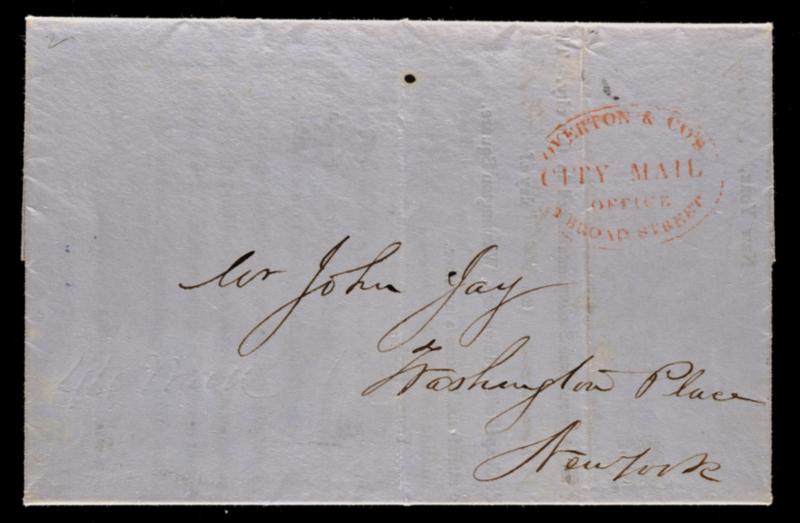 OVERTON & CO'S
CITY MAIL
OFFICE
BROAD STREET
Mr John Jay
Washington Place
New York